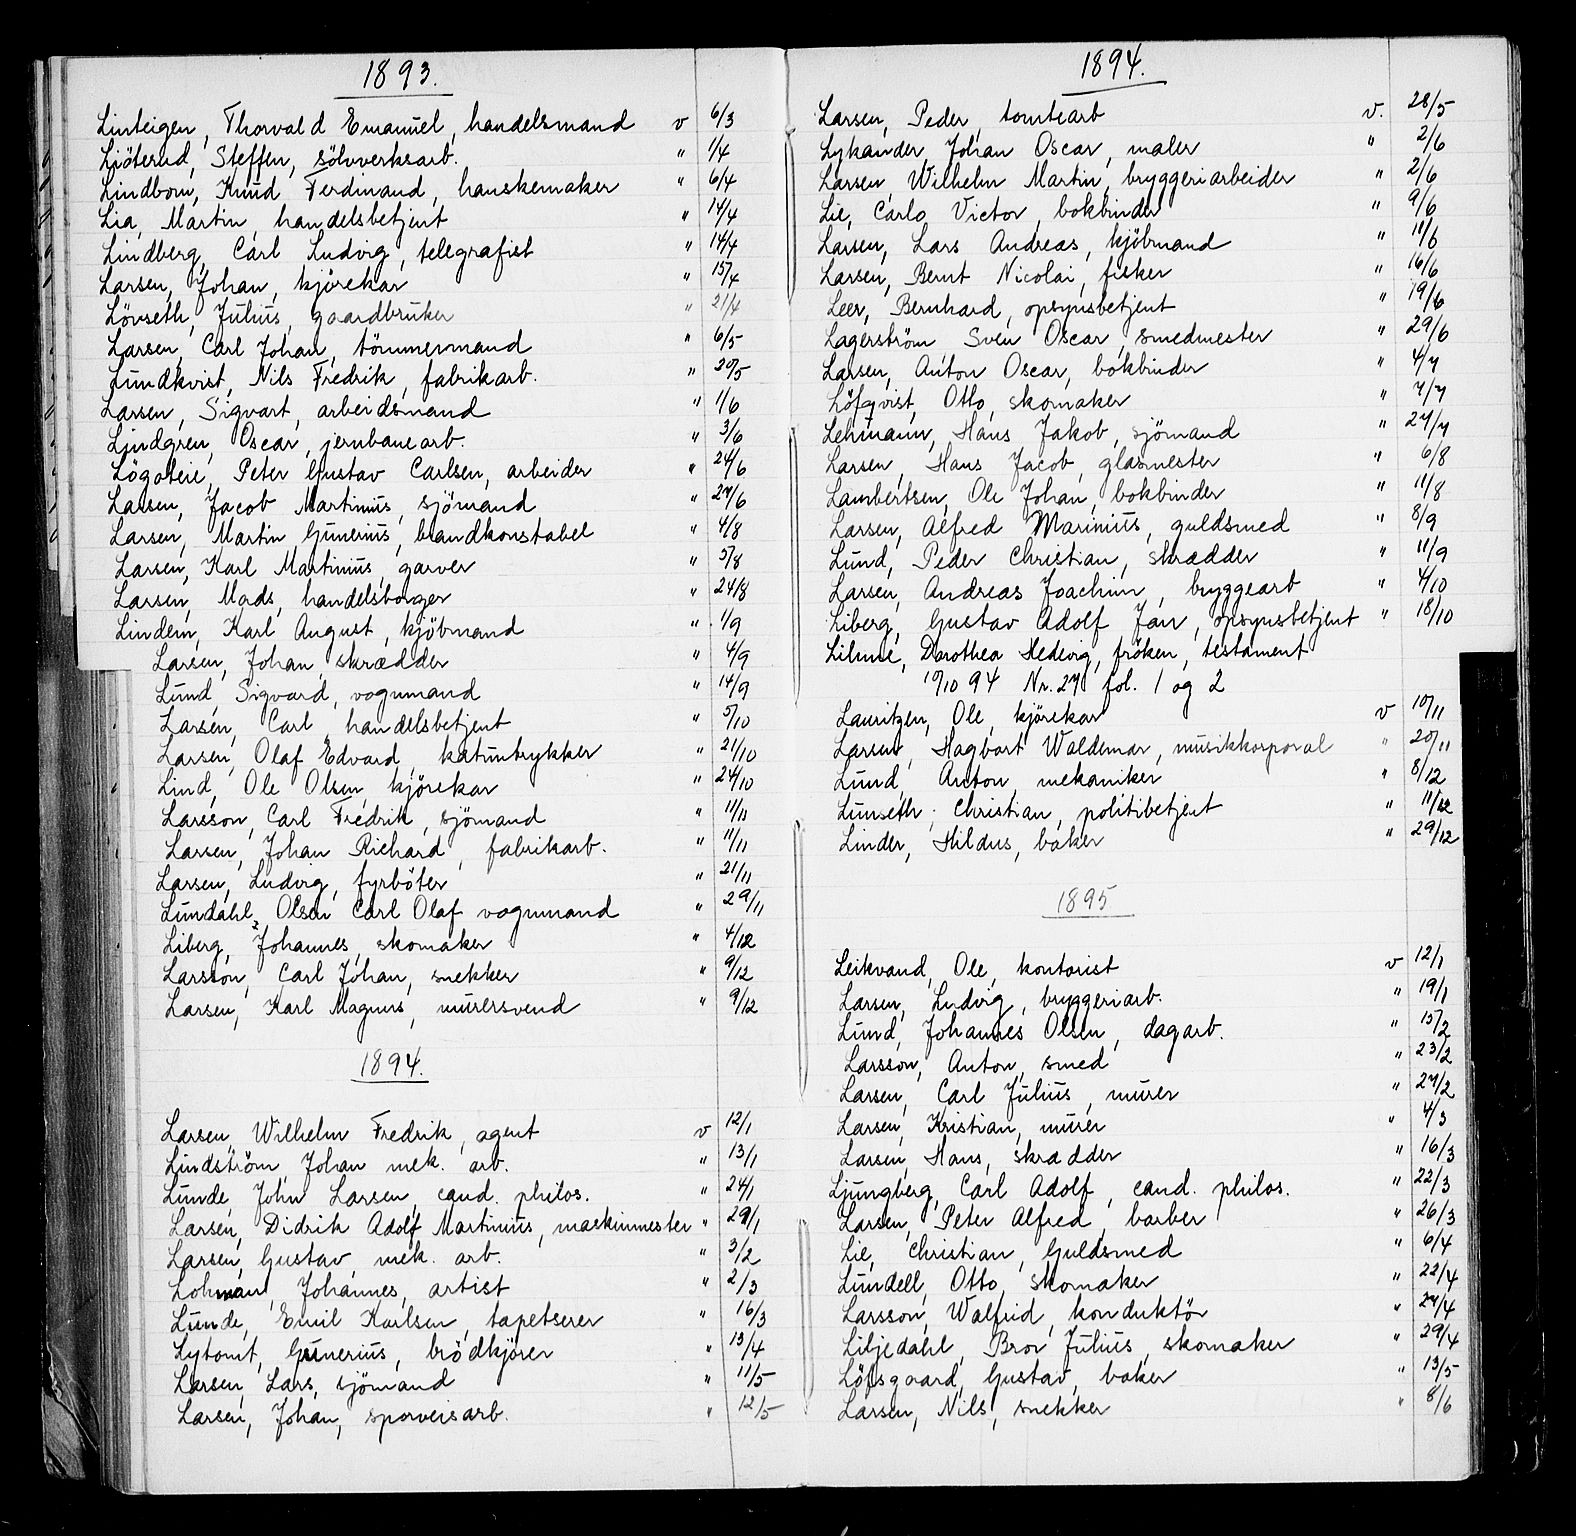 1893.
Linteigen, Thorvald Emanuel, handelsmand v 6/3
Ljöterud, Steffen, sölvverksarb. " 1/4
Lindbom, Knud Ferdinand, hanskemaker " 6/4
Lia, Martin, handelsbetjent " 14/4
Lindberg, Carl Ludvig, telegrafist " 14/4
Larsen, Johan, kjörekar " 15/4
Lövseth, Julius, gaardbruker " 21/4
Larsen, Carl Johan, tömmermand " 6/5
Lundkvist, Nils Fredrik, fabrikarb. " 20/5
Larsen, Sigvart, arbeidsmand " 1/6
Lindgren, Oscar, jernbanearb. " 3/6
Peter Gustav Carlsen, arbeider " 24/6
Larsen, Jacob Martinius, sjömand " 27/6
Larsen, Martin Gunerius, brandkonstabel " 4/8
Larsen, Karl Martinius, garver " 5/8
Larsen, Mads, handelsborger " 24/8
Lindem, Karl August, kjöbmand " 1/9
Larsen, Johan, skrædder " 4/9
Lund, Sigvard, vognmand " 14/9
Larsen, Carl, handelsbetjent " 5/10
Larsen, Olaf Edvard, katuntrykker " 21/10
Lind, Ole Olsen, kjörekar " 24/10
Larsson, Carl Fredrik, sjömand " 11/11
Larsen, Johan Richard, fabrikarb. " 11/11
Larsen, Ludvig, fyrböter " 21/11
Lundahl, Olsen Carl Olaf vognmand " 29/11
Liberg, Johannes, skomaker " 4/12
Larsson, Carl Johan, snekker " 9/12
Larsen, Karl Magnus, murersvend " 9/12
1894.
Larsen, Wilhelm Fredrik, agent v 12/1
Lindström, Johan mek. arb. " 13/1
Lunde, John Larsen, cand. philos. " 24/1
Larsen, Didrik Adolf Martinius, maskinmester " 29/1
Larsen, Gustav, mek. arb. " 3/2
Lohmann, Johannes, artist " 2/3
Lunde, Emil Karlsen, tapetserer " 16/3
Lytomt, Gunerius, brödkjörer " 13/4
Larsen, Lars, sjömand " 11/5
Larsen, Johan, sporveisarb. " 12/5
1894.
Larsen, Peder, tomtearb v. 28/5
Lykander, Johan Oscar, maler " 2/6
Larsen, Wilhelm Martin, bryggeriarbeider " 2/6
Lie, Carlo Victor, bokbinder " 9/6
Larsen, Lars Andreas, kjöbmand " 11/6
Larsen, Bernt Nicolai, fisker " 16/6
Leer, Bernhard, opsynsbetjent " 19/6
Lagerström Sven Oscar, smedmester " 29/6
Larsen, Anton Oscar, bokbinder " 4/7
Löfqvist, Otto, skomaker " 7/7
Lehmann, Hans Jakob, sjömand " 27/7
Larsen, Hans Jacob, glasmester " 6/8
Lambertsen, Ole Johan, bokbinder " 11/8
Larsen, Alfred Marinius, guldsmed " 8/9
Lund, Peder Christian, skrædder " 11/9
Larsen, Andreas Joachim, bryggearb " 4/10
Liberg, Gustav Adolf Jan, opsynsbetjent " 18/10
Dorothea Hedevig, fröken, testament
19/10 94 Nr. 27 fol. 1 og 2
Lauritzen, Ole, kjörekar v 10/11
Larsen, Hagbart Waldemar, musikkorporal " 20/11
Lund, Anton mekaniker " 8/12
Lunseth, Christian, politibetjent " 11/12
Linder, Hildus, baker " 29/12
1895
Leikvand, Ole, kontorist v 12/1
Larsen, Ludvig, bryggeriarb. " 19/1
Lund, Johannes Olsen, dagarb. " 15/2
Larsson, Anton, smed " 23/2
Larsen, Carl Julius, murer " 27/2
Larsen, Kristian, murer " 4/3
Larsen, Hans, skrædder " 16/3
Ljungberg, Carl Adolf, cand. philos. " 22/3
Larsen, Peter Alfred, barber " 26/3
Lie, Christian, Guldsmed " 6/4
Lundell, Otto, skomaker " 22/4
Larsson, Walfrid, konduktör " 27/4
Liljedahl, Bror Julius, skomaker " 29/4
Löfsgaard, Gustav, baker " 13/5
Larsen, Nils, snekker " 8/6